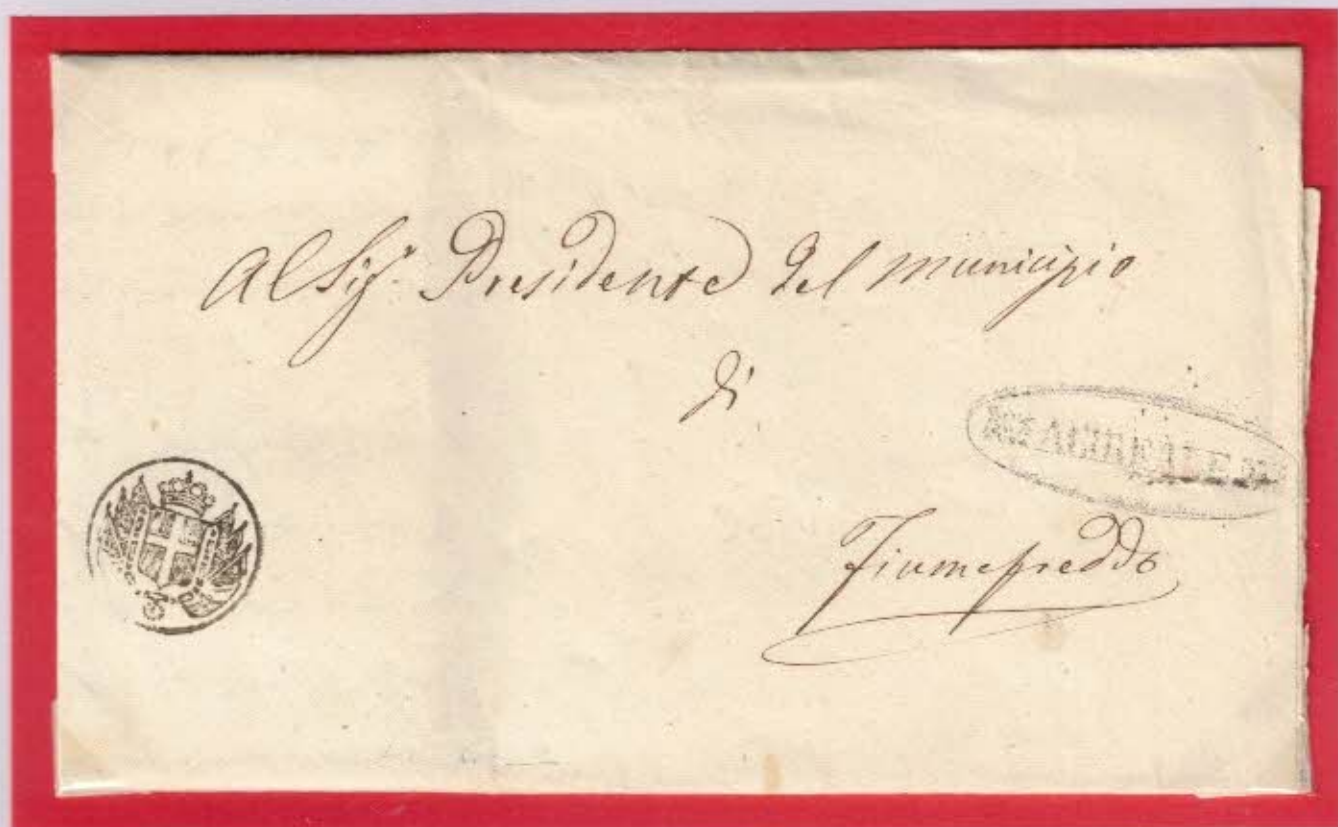 Al Sig.r Presidente del Municipio
di
ACIREALE
Fiumefreddo